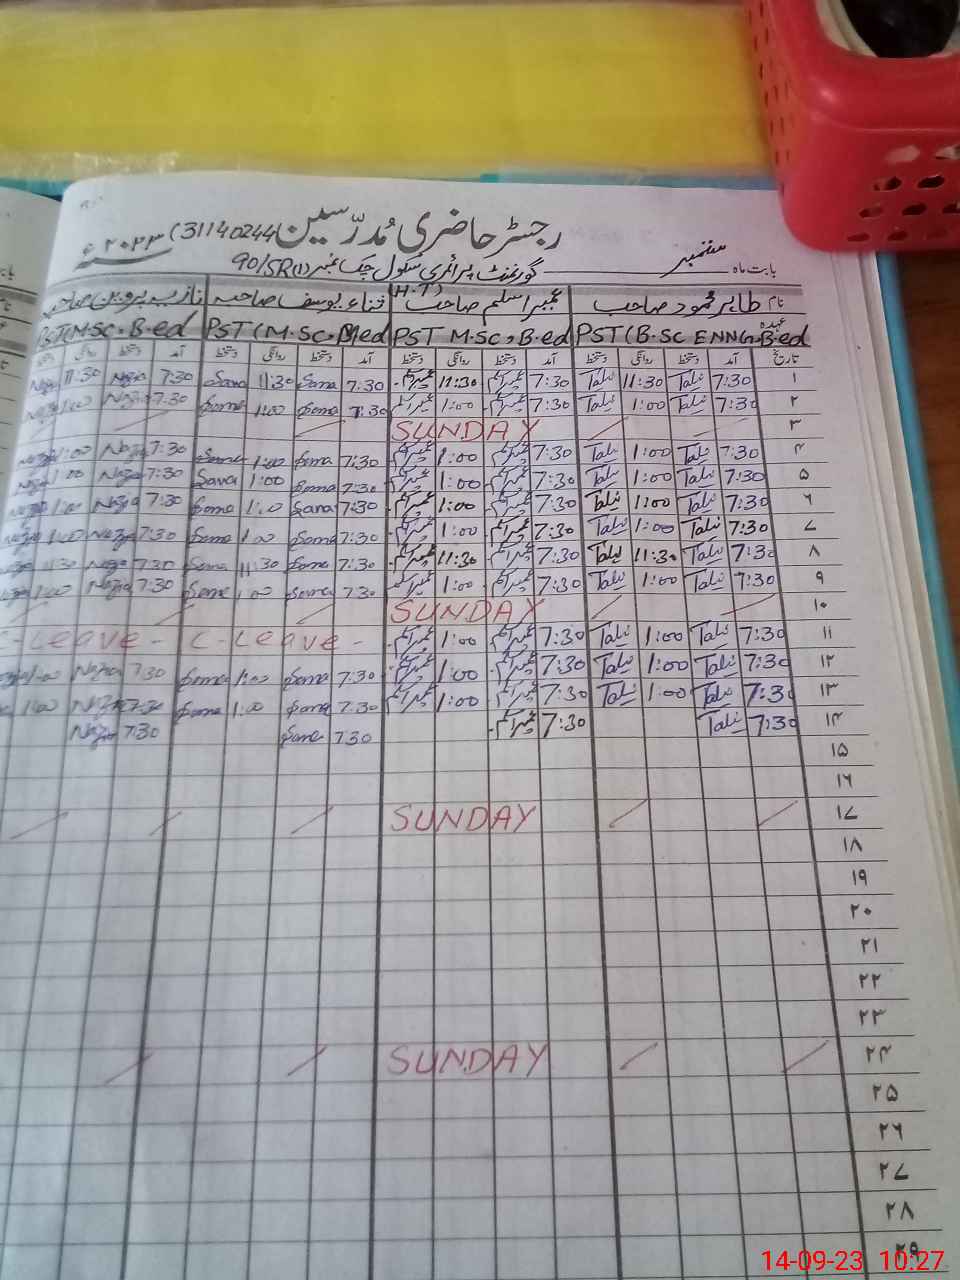 رجسٹر حاضری مُدرّسین (31140244) ۲۰۲۳ ء
بابت ماہ ستمبر گورنمنٹ پرائمری سکول چک نمبر 90/5R(1)
نام طاہر محمود صاحب عمیر اسلم صاحب (H.T) ثناء یوسف صاحبہ نازیہ پروین صاحبہ
عہدہ PST (B.SC ENNG, B.ed PST M.SC, B.ed PST (M.SC, B.ed PST (M.SC, B.ed
تاریخ آمد دستخط روانگی دستخط آمد دستخط روانگی دستخط آمد دستخط روانگی دستخط آمد دستخط روانگی
۱ 7:30 Talib 11:30 Talib 7:30 11:30 7:30 Sana 11:30 Sana 7:30 Nazia 11:30 Nazia
۲ 7:30 Talib 1:00 Talib 7:30 1:00 7:30 Sana 1:00 Sana 7:30 Nazia 1:00 Nazia
۳ SUNDAY
۴ 7:30 Talib 1:00 Talib 7:30 1:00 7:30 Sana 1:00 Sana 7:30 Nazia 1:00 Nazia
۵ 7:30 Talib 1:00 Talib 7:30 1:00 7:30 Sana 1:00 Sana 7:30 Nazia 1:00 Nazia
۶ 7:30 Talib 1:00 Talib 7:30 1:00 7:30 Sana 1:00 Sana 7:30 Nazia 1:00 Nazia
۷ 7:30 Talib 1:00 Talib 7:30 1:00 7:30 Sana 1:00 Sana 7:30 Nazia 1:00 Nazia
۸ 7:30 Talib 11:30 Talib 7:30 11:30 7:30 Sana 11:30 Sana 7:30 Nazia 11:30 Nazia
۹ 7:30 Talib 1:00 Talib 7:30 1:00 7:30 Sana 1:00 Sana 7:30 Nazia 1:00 Nazia
۱۰ SUNDAY
۱۱ 7:30 Talib 1:00 Talib 7:30 1:00 C-Leave - C-Leave -
۱۲ 7:30 Talib 1:00 Talib 7:30 1:00 7:30 Sana 1:00 Sana 7:30 Nazia 1:00 Nazia
۱۳ 7:30 Talib 1:00 Talib 7:30 1:00 7:30 Sana 1:00 Sana 7:30 Nazia 1:00
۱۴ 7:30 Talib 7:30 7:30 Sana 7:30 Nazia
۱۵
۱۶
۱۷ SUNDAY
۱۸
۱۹
۲۰
۲۱
۲۲
۲۳
۲۴ SUNDAY
۲۵
۲۶
۲۷
۲۸
۲۹
14-09-23 10:27